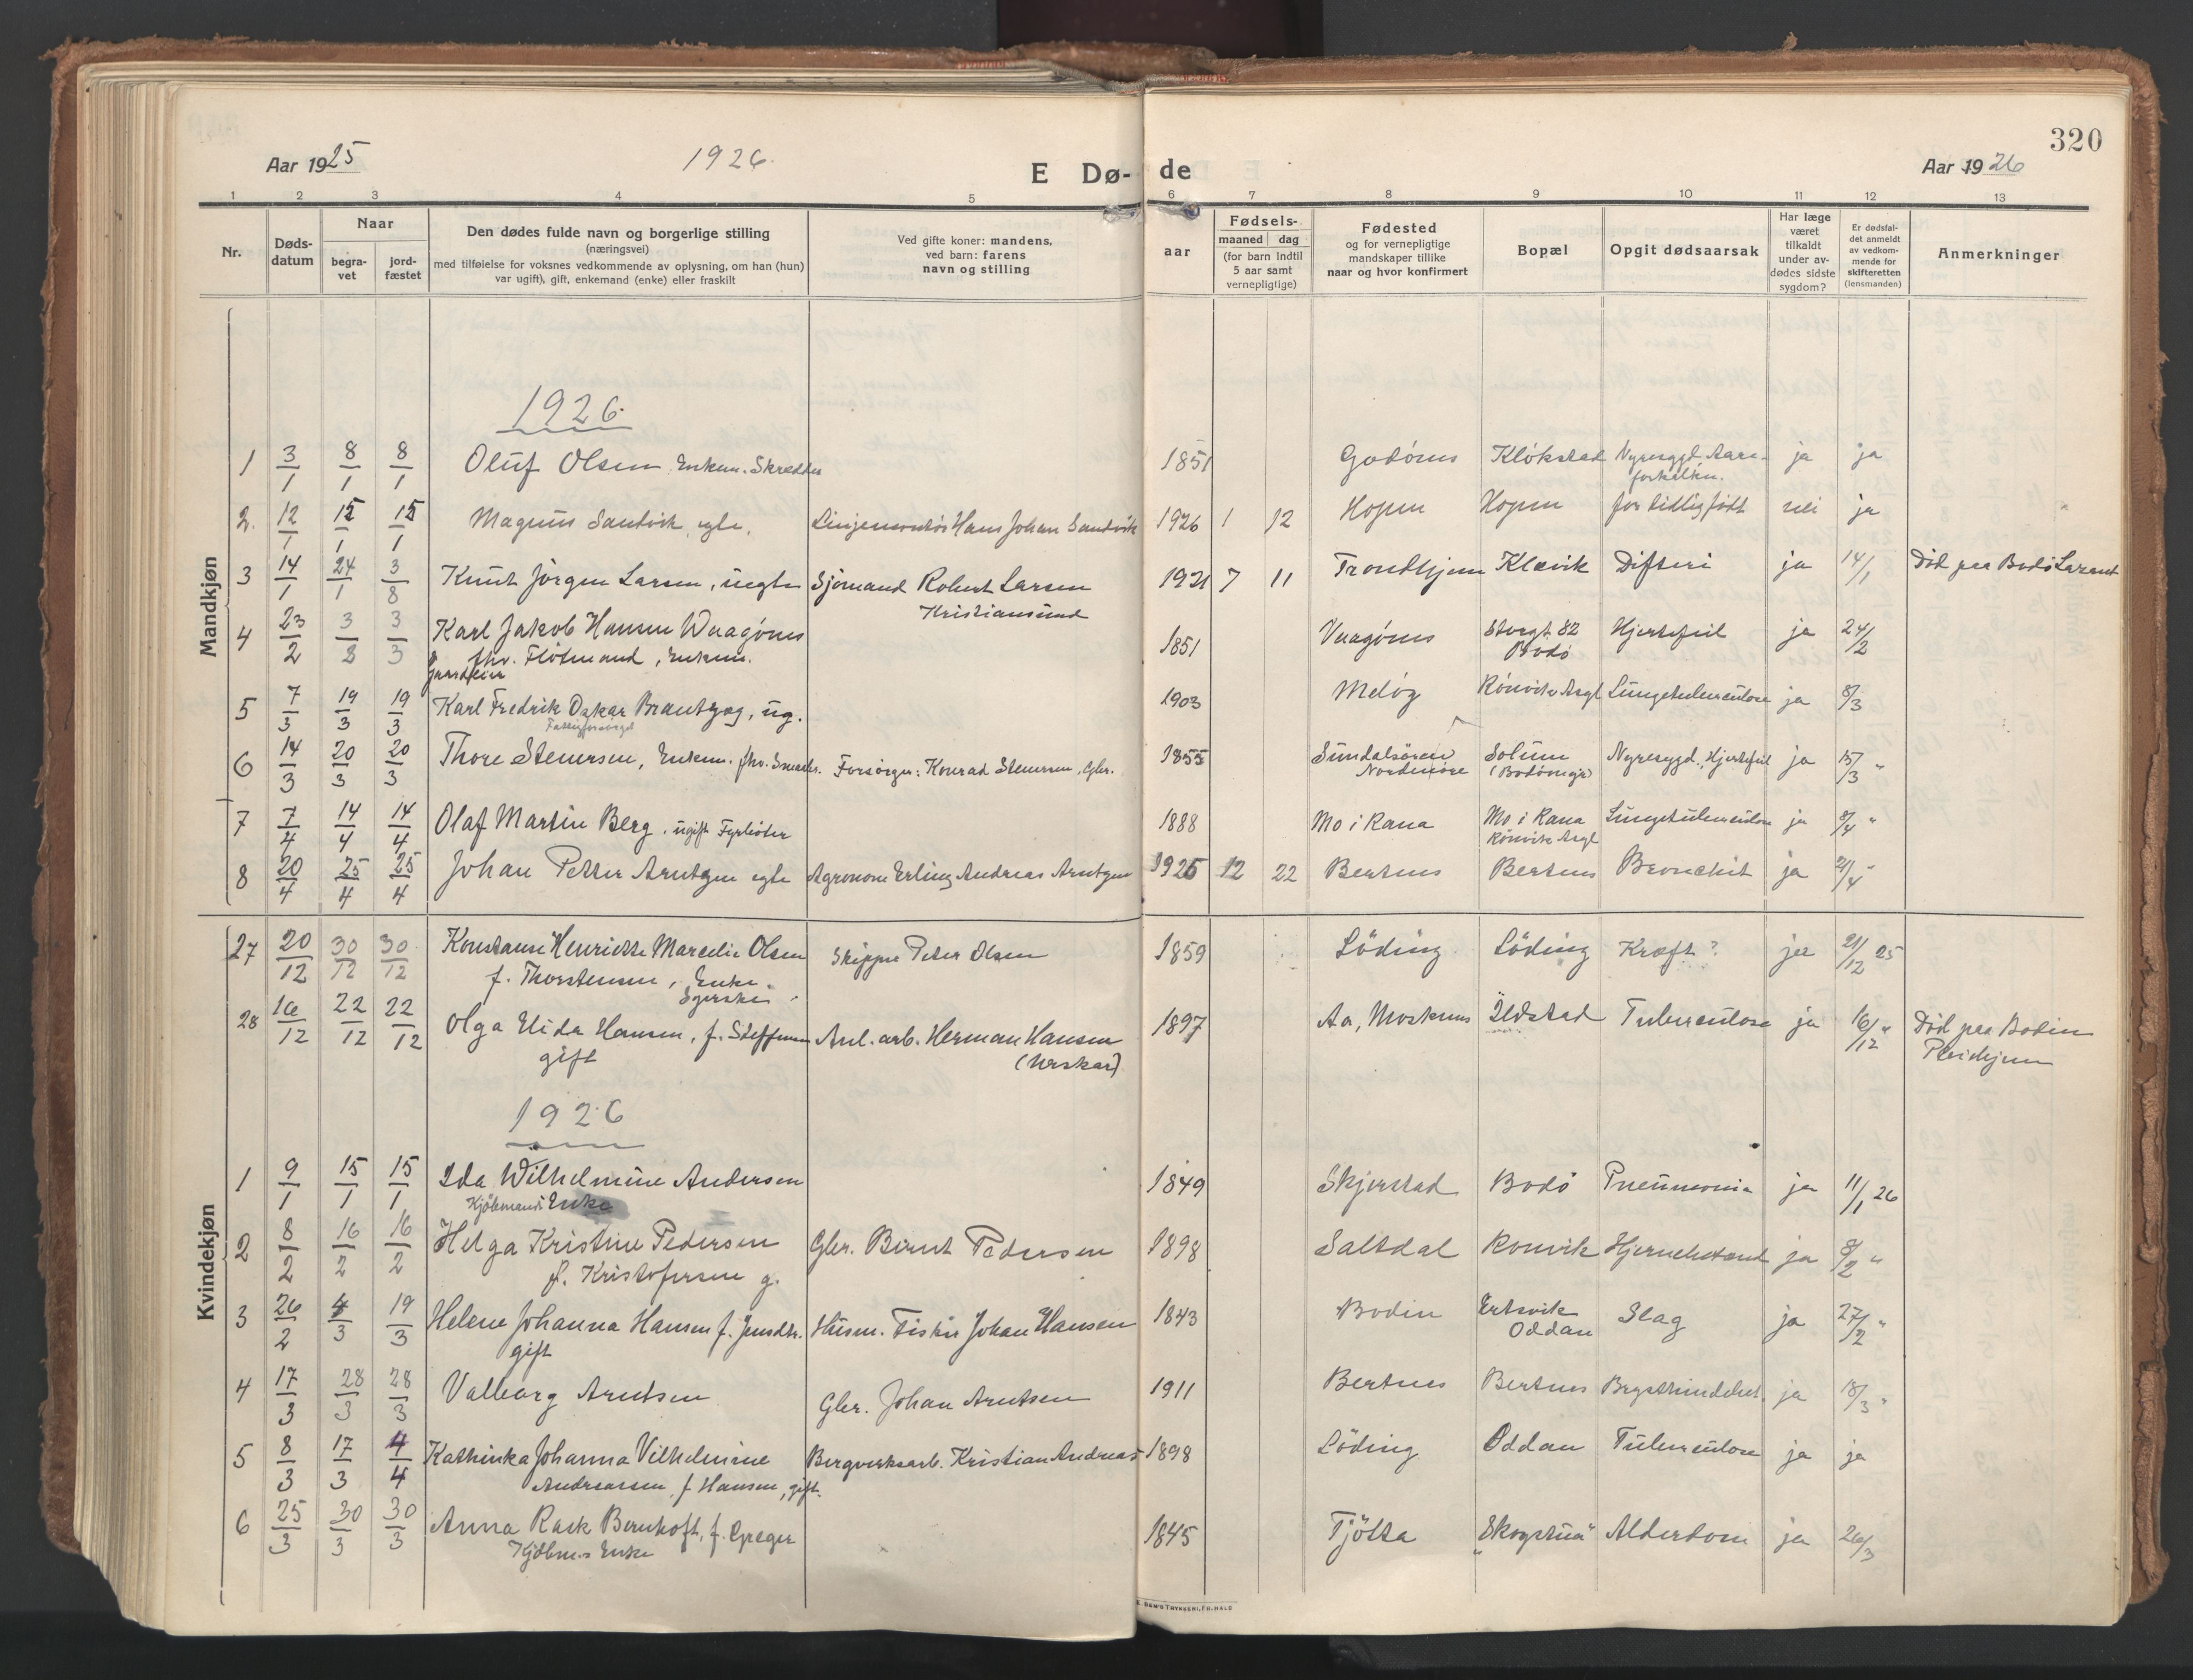 320
Aar 1925
1926.
E Dø-
de
Aar 1926
1 2 3 4 5 6 7 8 9 10 11 12 13
Nr.
Døds-
datum
Naar
begra-
vet
jord-
fæstet
Den dødes fulde navn og borgerlige stilling
(næringsvei)
med tilføielse for voksnes vedkommende av oplysning, om han (hun)
var ugift), gift, enkemand (enke) eller fraskilt
Ved gifte koner: mandens,
ved barn: farens
navn og stilling
aar
Fødsels-
maaned dag
(for barn indtil
5 aar samt
vernepligtige)
Fødested
og for vernepligtige
mandskaper tillike
naar og hvor konfirmert
Bopæl
Opgit dødsaarsak
Har læge
været
tilkaldt
under av-
dødes sidste
sygdom?
Er dødsfal-
det anmeldt
av vedkom-
mende for
skifteretten
(lensmanden)
Anmerkninger
Mandkjøn
1926.
1 3/1 8/1 8/1 Oluf Olsen, Enkem. Skrædder 1851 Godönes Klökstad Nyresygd. Aare- ja ja
forkalkn.
2. 12/1 15/1 15/1 Magnus Sandvik, egte. Linjemontös Hans Johan Sandvik 1926 1 12 Hopen Hopen for tidlig født nei ja
3 14/1 24/1 3/8 Knut Jörgen Larsen, uegte Sjömand Robert Larsen 1921 7 11 Trondhjem Klævik Difteri ja 14/1 Död paa Bodö Lazaret
Kristiansund
4 23/2 3/3 3/3 Karl Jakob Hansen Vaagönes 1851 Vaagönes Storgt 82 Hjertefeil ja 24/2
fhv. Flötmand, Enkem. Bodö
Gaardeier
5 7/3 19/3 19/3 Karl Fredrik Oskar Brantzæg, ug. 1903 Melöy Rönvik Asyl Lungetuberculose ja 8/3
Fattigforsörgd
6 14/3 20/3 20/3 Thore Stenersen, Enkem. fhv. Snedker. Forsörger: Konrad Stenersen, Gbr. 1855 Sundalsören Solum Nyresygd., Hjertefeil ja 15/3 "
Nordmöre (Bodömarka)
7 7/4 14/4 14/4 Olaf Martin Berg, ugift Fyrböter 1888 Mo i Rana Mo i Rana Lungetuberculose ja 8/4 "
Rönvik Asyl
8 20/4 25/4 25/4 Johan Petter Arntzen egte Agronom Erling Andreas Arntzen 1925 12 22 Bertnes Bertnes Bronchit ja 21/4 "
Kvindekjøn
27 20/12 30/12 30/12 Konstanse Henriette Marcelie Olsen Skipper Peter Olsen 1859 Löding Löding Kræft? ja 21/12 25
f. Thorstensen, Enke.
Syerske
28 16/12 22/12 22/12 Olga Elida Hansen, f. Steffensen Anl. arb. Herman Hansen 1897 Aa, Moskenes Ildstad Tuberculose ja 16/12 " Död paa Bodin
gift (Urskar) Pleiehjem
1926
1 9/1 15/1 15/1 Ida Wilhelmine Andersen 1849 Skjerstad Bodö Pneumonia ja 11/1 26
Kjöbmands Enke
2 8/2 16/2 16/2 Helga Kristine Pedersen Gbr. Bernt Pedersen 1898 Saltdal Ronvik Hjernebetænd ja 8/2 "
f. Kristofersen g.
3 26/2 4/3 19/3 Helene Johanna Hansen f. Jensdtr. Husm. Fisker Johan Hansen 1843 Bodin Ertsvik Slag ja 27/2 "
gift Oddan
4 17/3 28/3 28/3 Valborg Arntsen Gbr. Johan Arntsen 1911 Bertnes Bertnes Brysthindebet. ja 18/3 "
5 8/3 17/3 4/4 Kathinka Johanna Vilhelmine Bergverksarb. Kristian Andreas- 1898 Löding Oddan Tuberculose ja ja
Andreassen, f. Hansen, gift.
6 25/3 30/3 30/3 Anna Rask Bernhoft, f. Greger 1845 Tjötta "Skogstua" Alderdom ja 26/3
Kjöbm.s Enke